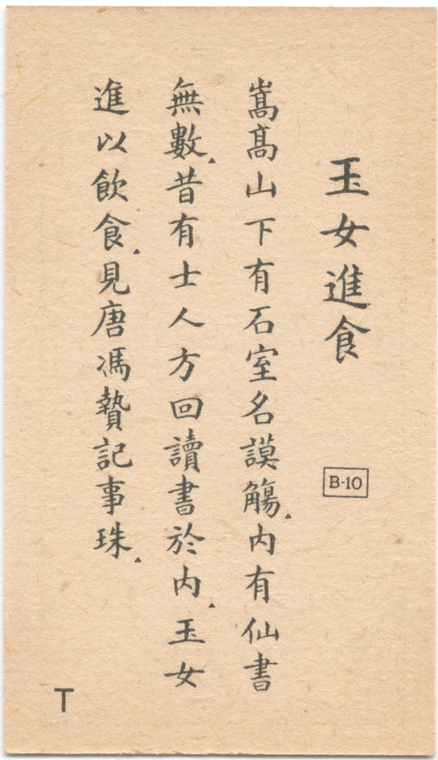 玉女進食
B-10
嵩髙山下有石室名謨觴.內有仙書
無數.昔有士人方回讀書於內.玉女
進以飲食.見唐馮贄記事珠.
T